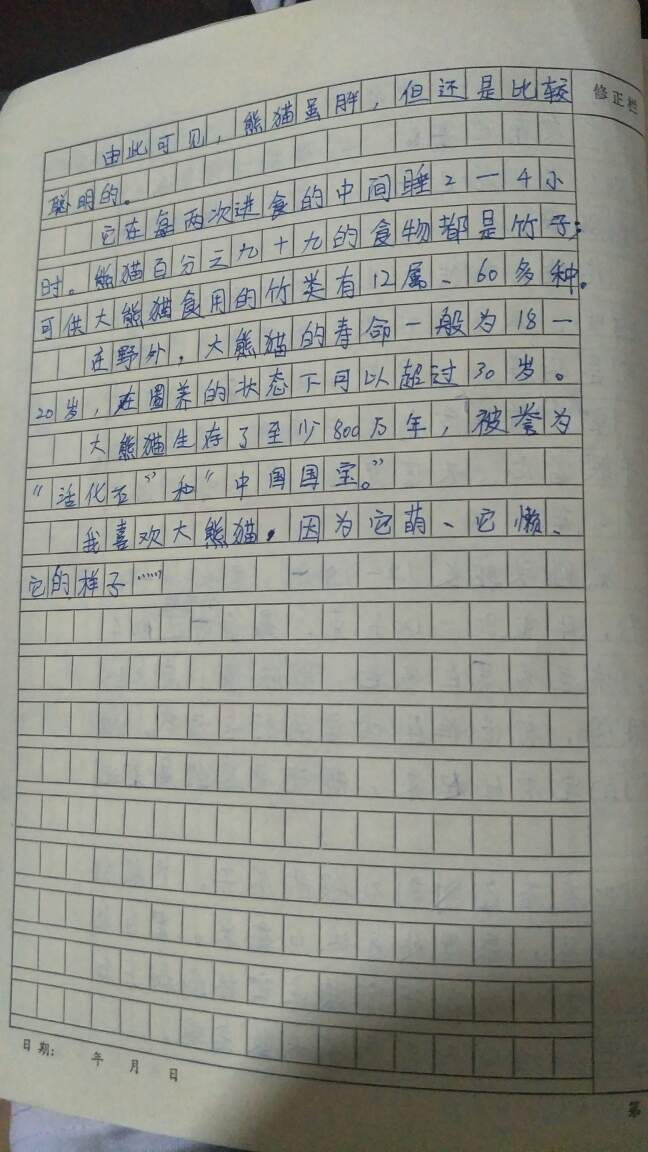 修正栏
由此可见，熊猫虽胖，但还是比较
聪明的。
它在每两次进食的中间睡2一4小
时。熊猫百分之九十九的食物都是竹子；
可供大熊猫食用的竹类有12属、60多种。
在野外，大熊猫的寿命一般为18一
20岁，在圈养的状态下可以超过30岁。
大熊猫生存了至少800万年，被誉为
“活化石”和“中国国宝。”
我喜欢大熊猫，因为它萌、它懒、
它的样子……
日期： 年 月 日
第